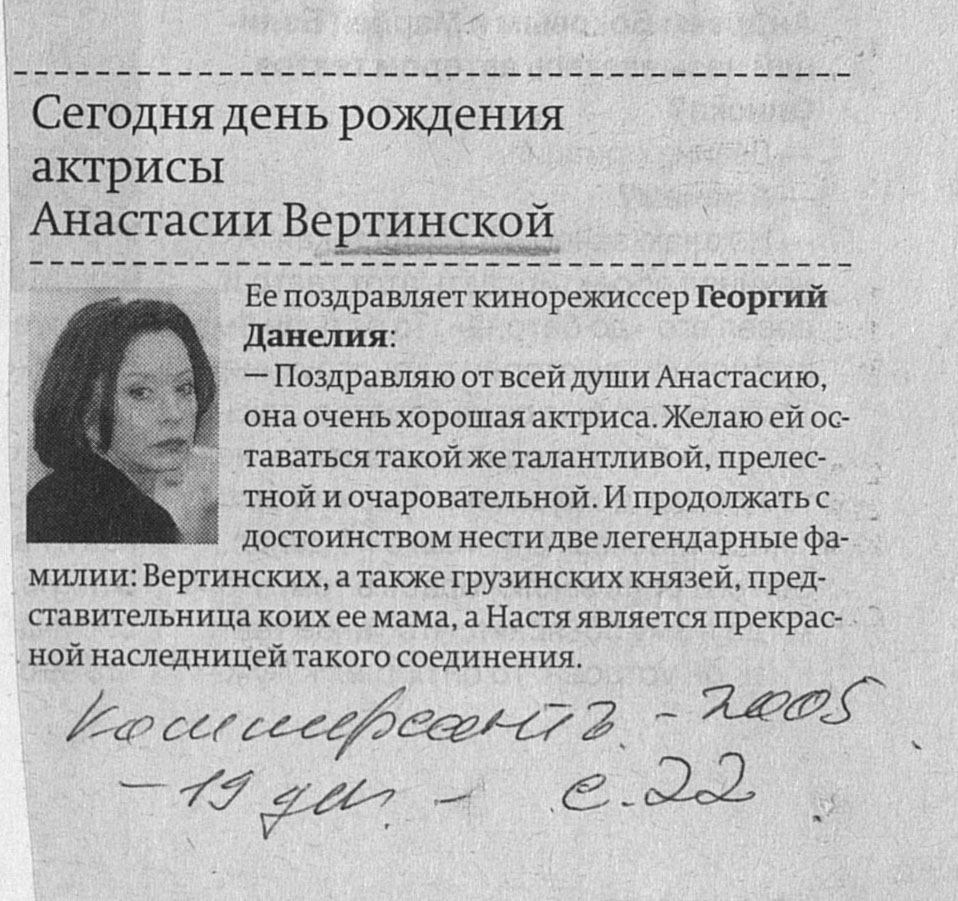 Сегодня день рождения
актрисы
Анастасии Вертинской
Ее поздравляет кинорежиссер Георгий
Данелия:
— Поздравляю от всей души Анастасию,
она очень хорошая актриса. Желаю ей ос-
таваться такой же талантливой, прелес-
тной и очаровательной. И продолжать с
достоинством нести две легендарные фа-
милии: Вертинских, а также грузинских князей, пред-
ставительница коих ее мама, а Настя является прекрас-
ной наследницей такого соединения.
Коммерсантъ. - 2005.
- 19 дек. - с. 22.